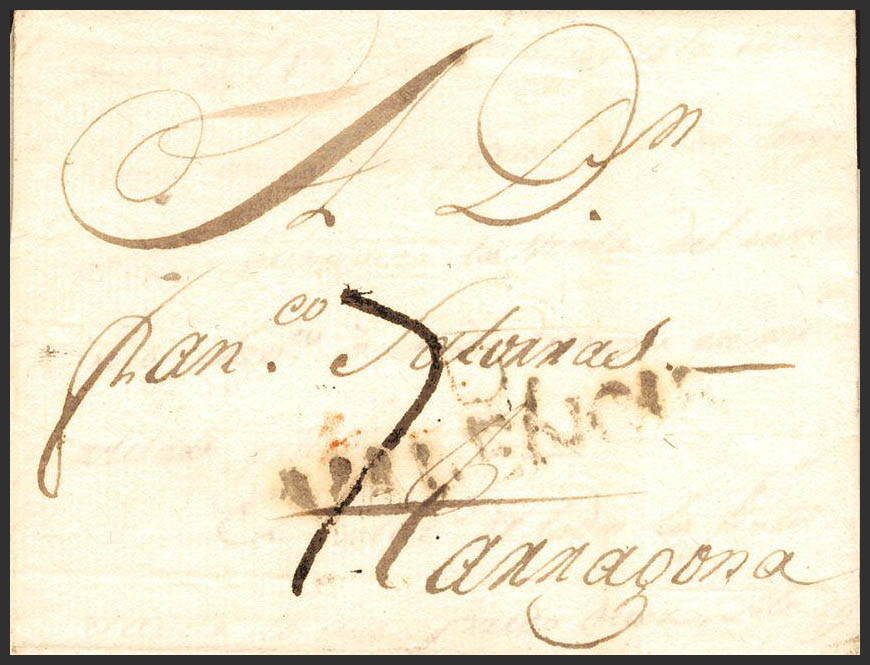 A Dn.
Fran.co Satorras.
7
VALENCIA
Tarragona